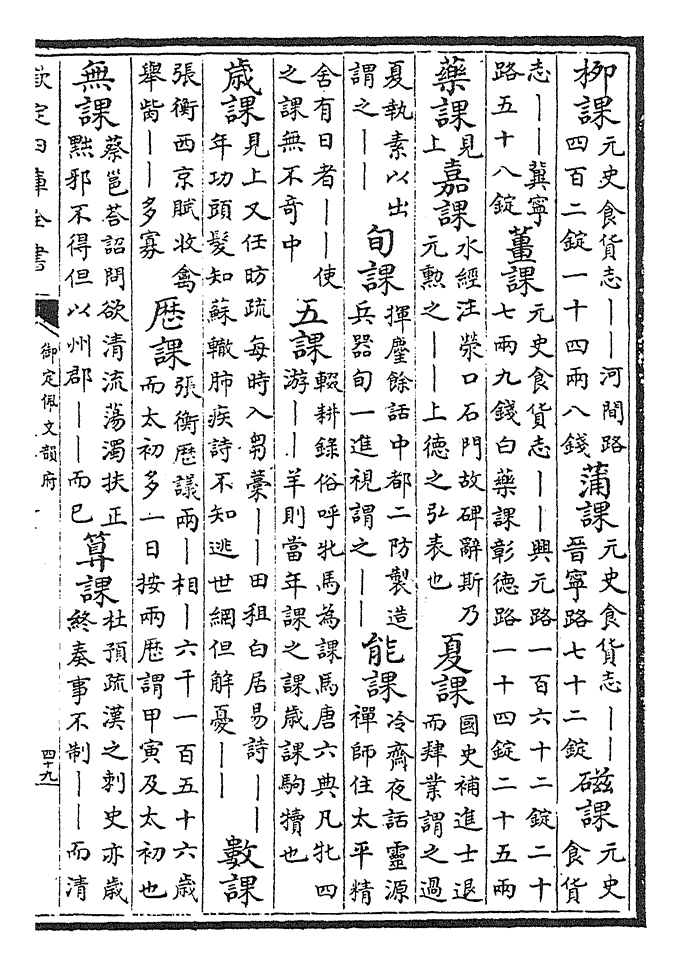 柳課元史食貨志——河間路四百二錠一十四兩八錢蒲課元史食貨志——晉寧路七十二錠磁課元史食貨
志——冀寧路五十八錠薑課元史食貨志——興元路一百六十二錠二十七兩九錢白藥課彰德路一十四錠二十五兩
藥課見上嘉課水經注滎口石門故碑辭斯乃元勲之——上德之弘表也夏課國史補進士退而肆業謂之過
夏執素以出謂之——旬課揮麈餘話中都二防製造兵器旬一進視謂之——能課冷齋夜話靈源禪師住太平精
舍有日者——使之課無不奇中五課輟耕錄俗呼牝馬為課馬唐六典凡牝四游——羊則當年課之課歲課駒犢也
歲課見上又任昉疏每時入芻藁——田租白居易詩——年功頭髮知蘇轍肺疾詩不知逃世網但解憂——數課
張衡西京賦收禽舉胔——多寡歴課張衡歴議兩—相—六千一百五十六歲而太初多一日按兩歴謂甲寅及太初也
無課蔡邕荅詔問欲清流蕩濁扶正黜邪不得但以州郡——而已算課杜預疏漢之刺史亦歲終奏事不制——而清
欽定四庫全書
御定佩文韻府
四十九